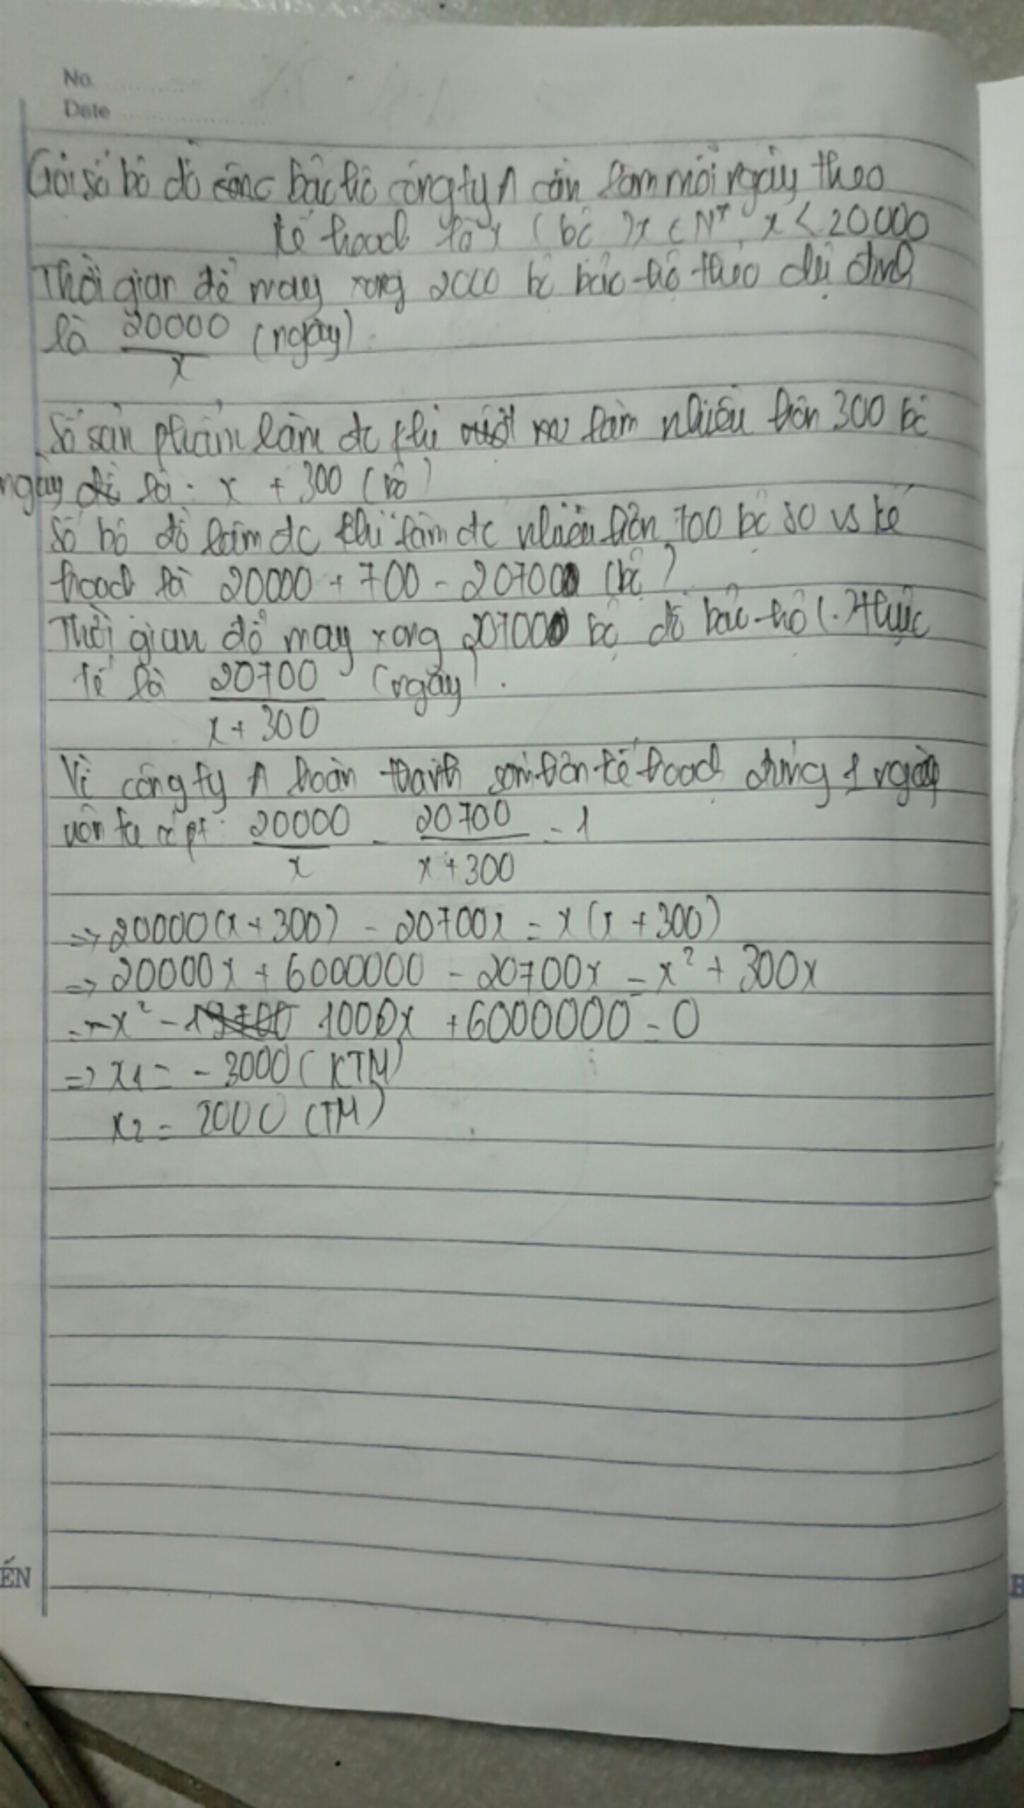 No.
Date
Gọi số bộ đồ bảo hộ công ty A cần làm mỗi ngày theo
kế hoạch là x (bộ) x ∈ N* x < 20000
Thời gian để may xong 2000 bộ bảo hộ theo dự định
là 20000/x (ngày)
Số sản phẩm làm đc khi làm nhiều hơn 300 bộ
ngày là: x + 300 (bộ)
Số bộ đồ làm đc khi làm đc nhiều hơn 700 bộ so vs kế
hoạch là 20000 + 700 = 20700 (bộ)
Thời gian để may xong 20700 bộ đồ bảo hộ thực
tế là 20700/x + 300 (ngày).
Vì công ty A hoàn thành sớm hơn kế hoạch đúng 1 ngày
nên ta có pt: 20000/x - 20700/x + 300 = 1
=> 20000(x + 300) - 20700x = x(x + 300)
=> 20000x + 6000000 - 20700x = x² + 300x
=> -x² - 1000x + 6000000 = 0
=> x1 = -3000 (KTM)
x2 = 2000 (TM)
ẾN